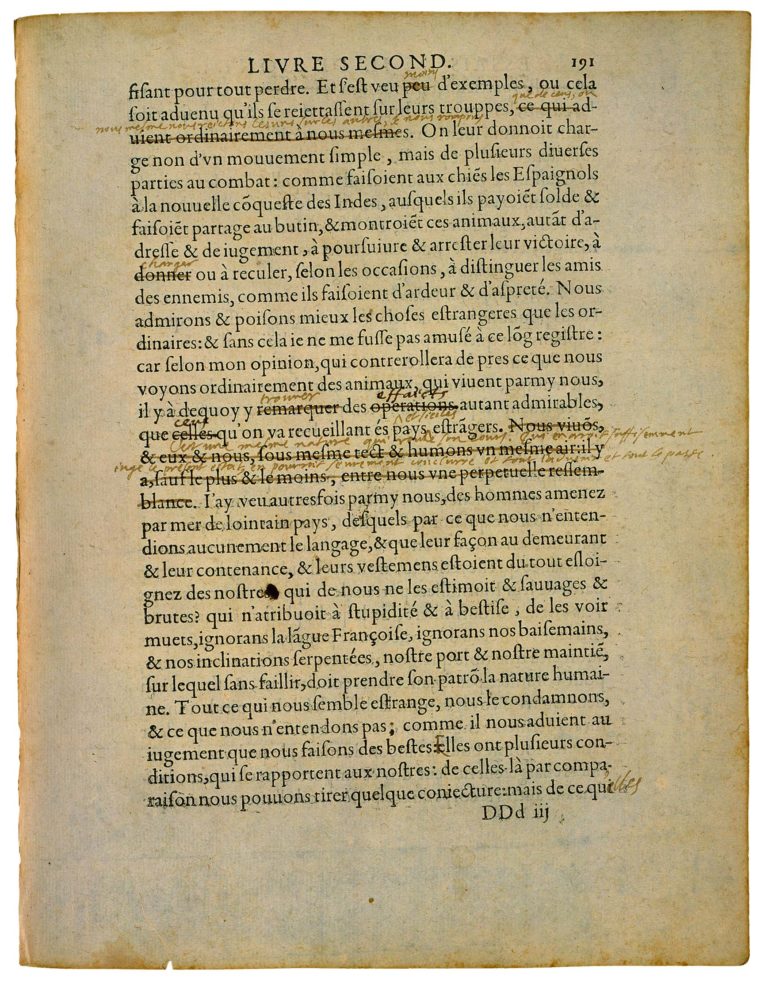 LIVRE SECOND. 191
moins
fisant pour tout perdre. Et s'est veu peu d'exemples, ou cela
que de ceus, ou
soit aduenu qu'ils se reiettassent sur leurs trouppes, ce qui ad-
nous mesme nous reiectons les uns sur les autres, & nous rompons
uient ordinairement à nous mesmes. On leur donnoit char-
ge non d'vn mouuement simple, mais de plusieurs diuerses
parties au combat: comme faisoient aux chiẽs les Espaignols
à la nouuelle cõqueste des Indes, ausquels ils payoiẽt solde &
faisoiẽt partage au butin, & montroiẽt ces animaux, autãt d'a-
dresse & de iugement, à poursuiure & arrester leur victoire, à
charger
donner ou à reculer, selon les occasions, à distinguer les amis
des ennemis, comme ils faisoient d'ardeur & d'aspreté. Nous
admirons & poisons mieux les choses estrangeres que les or-
dinaires: & sans cela ie ne me fusse pas amusé à ce lõg registre:
car selon mon opinion, qui contrerollera de pres ce que nous
voyons ordinairement des animaux, qui viuent parmy nous,
trouuer effaicts
il y à dequoy y remarquer des operations autant admirables,
ceus et siecles
que celles qu'on va recueillant és pays estrãgers. Nous viuõs,
C'est une mesme nature qui roule son cours. Qui en aroit suffisemment
& eux & nous, sous mesme tect & humons vn mesme air: il y
iugé le present estat, en pourroit seurement conclurre et tout l'aduenir et tout le passé.
a, sauf le plus & le moins, entre nous vne perpetuelle ressem-
blance. I'ay veu autresfois parmy nous, des hommes amenez
par mer de lointain pays, desquels par ce que nous n'enten-
dions aucunement le langage, & que leur façon au demeurant
& leur contenance, & leurs vestemens estoient du tout esloi-
gnez des nostres qui de nous ne les estimoit & sauuages &
brutes? qui n'atribuoit à stupidité & à bestise, de les voir
muets, ignorans la lãgue Françoise, ignorans nos baisemains,
& nos inclinations serpentées, nostre port & nostre maintiẽ,
sur lequel sans faillir, doit prendre son patrõ la nature humai-
ne. Tout ce qui nous semble estrange, nous le condamnons,
& ce que nous n'entendons pas; comme il nous aduient au
iugement que nous faisons des bestes: Elles ont plusieurs con-
ditions, qui se rapportent aux nostres: de celles-là par compa-
raison nous pouuons tirer quelque coniecture: mais de ce qui elles
DDd iij